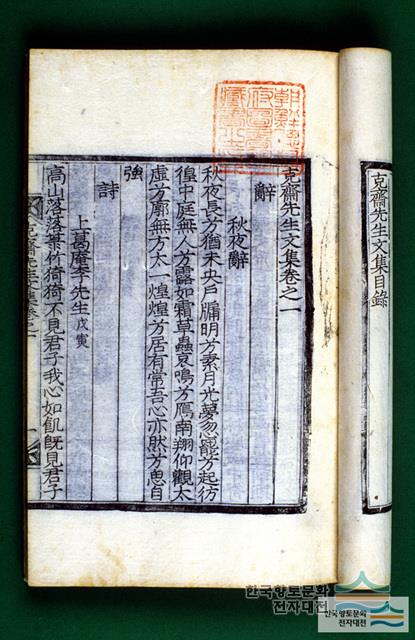 克齋先生文集目錄
朝鮮總督
府圖書館
藏書之印
克齋先生文集卷之一
辭
秋夜辭
秋夜長兮猶未央戶牖明兮素月光夢忽寤兮起彷
徨中庭無人兮露如霜草蟲哀鳴兮鴈南翔仰觀太
虛兮廓無方太一煌煌兮居有常吾心亦然兮思自
強
詩
上葛庵李先生戊寅
高山落落菉竹猗猗不見君子我心如飢旣見君子
克齋先生文集卷之一
一
한국향토문화
전자대전
한국향토문화
전자대전